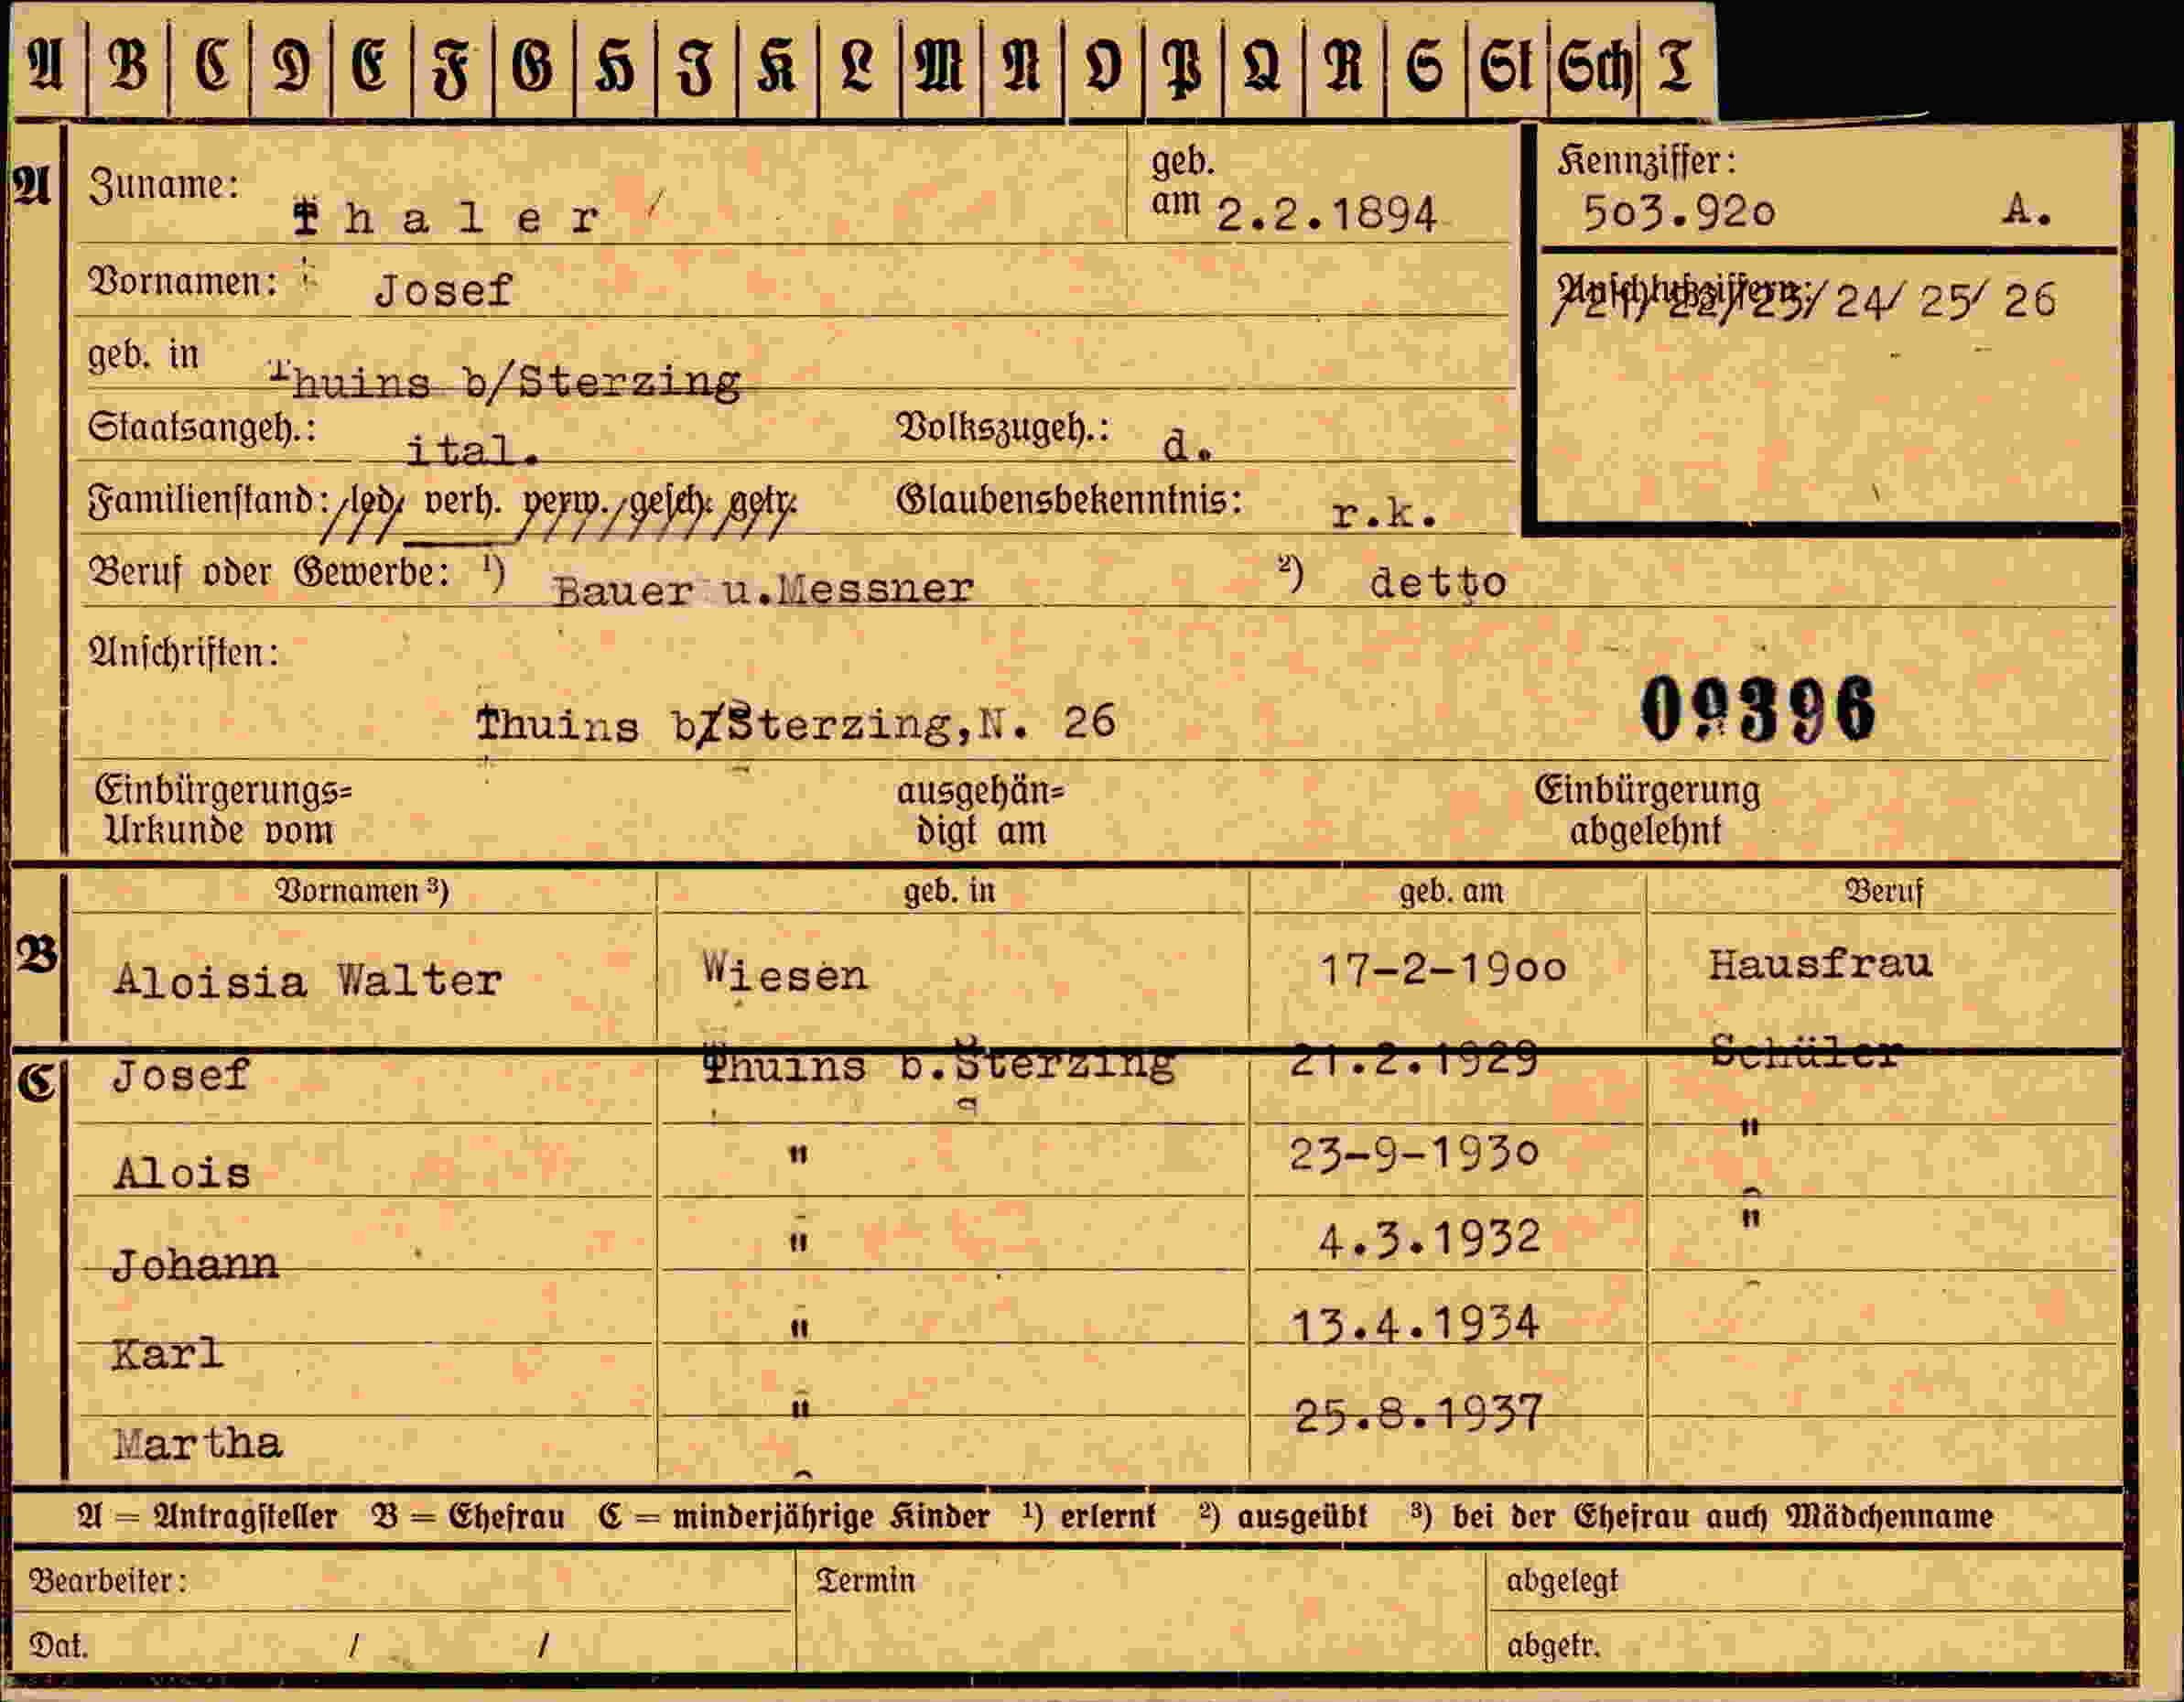 A B C D E F G H I K L M N O P Q R S St Sch T
A Zuname: Thaler geb. am 2.2.1894 Kennziffer: 503.920 A.
Vornamen: Josef Anschlußziffern: /21/ 22/23/ 24/ 25/ 26
geb. in Thuins b/Sterzing
Staatsangeh.: ital. Volkszugeh.: d.
Familienstand: led. verh. verw. gesch. getr. Glaubensbekenntnis: r.k.
Beruf oder Gewerbe: 1) Bauer u.Messner 2) detto
Anschriften:
Thuins b/Sterzing,N. 26 09396
Einbürgerungs= ausgehän= Einbürgerung
Urkunde vom digt am abgelehnt
Vornamen 3) geb. in geb. am Beruf
B Aloisia Walter Wiesen 17-2-1900 Hausfrau
C Josef Thuins b.Sterzing 21.2.1929 Schüler
Alois " 23-9-1930 "
Johann " 4.3.1932 "
Karl " 13.4.1934
Martha " 25.8.1937
A = Antragsteller B = Ehefrau C = minderjährige Kinder 1) erlernt 2) ausgeübt 3) bei der Ehefrau auch Mädchenname
Bearbeiter: Termin abgelegt
Dat. / / abgetr.